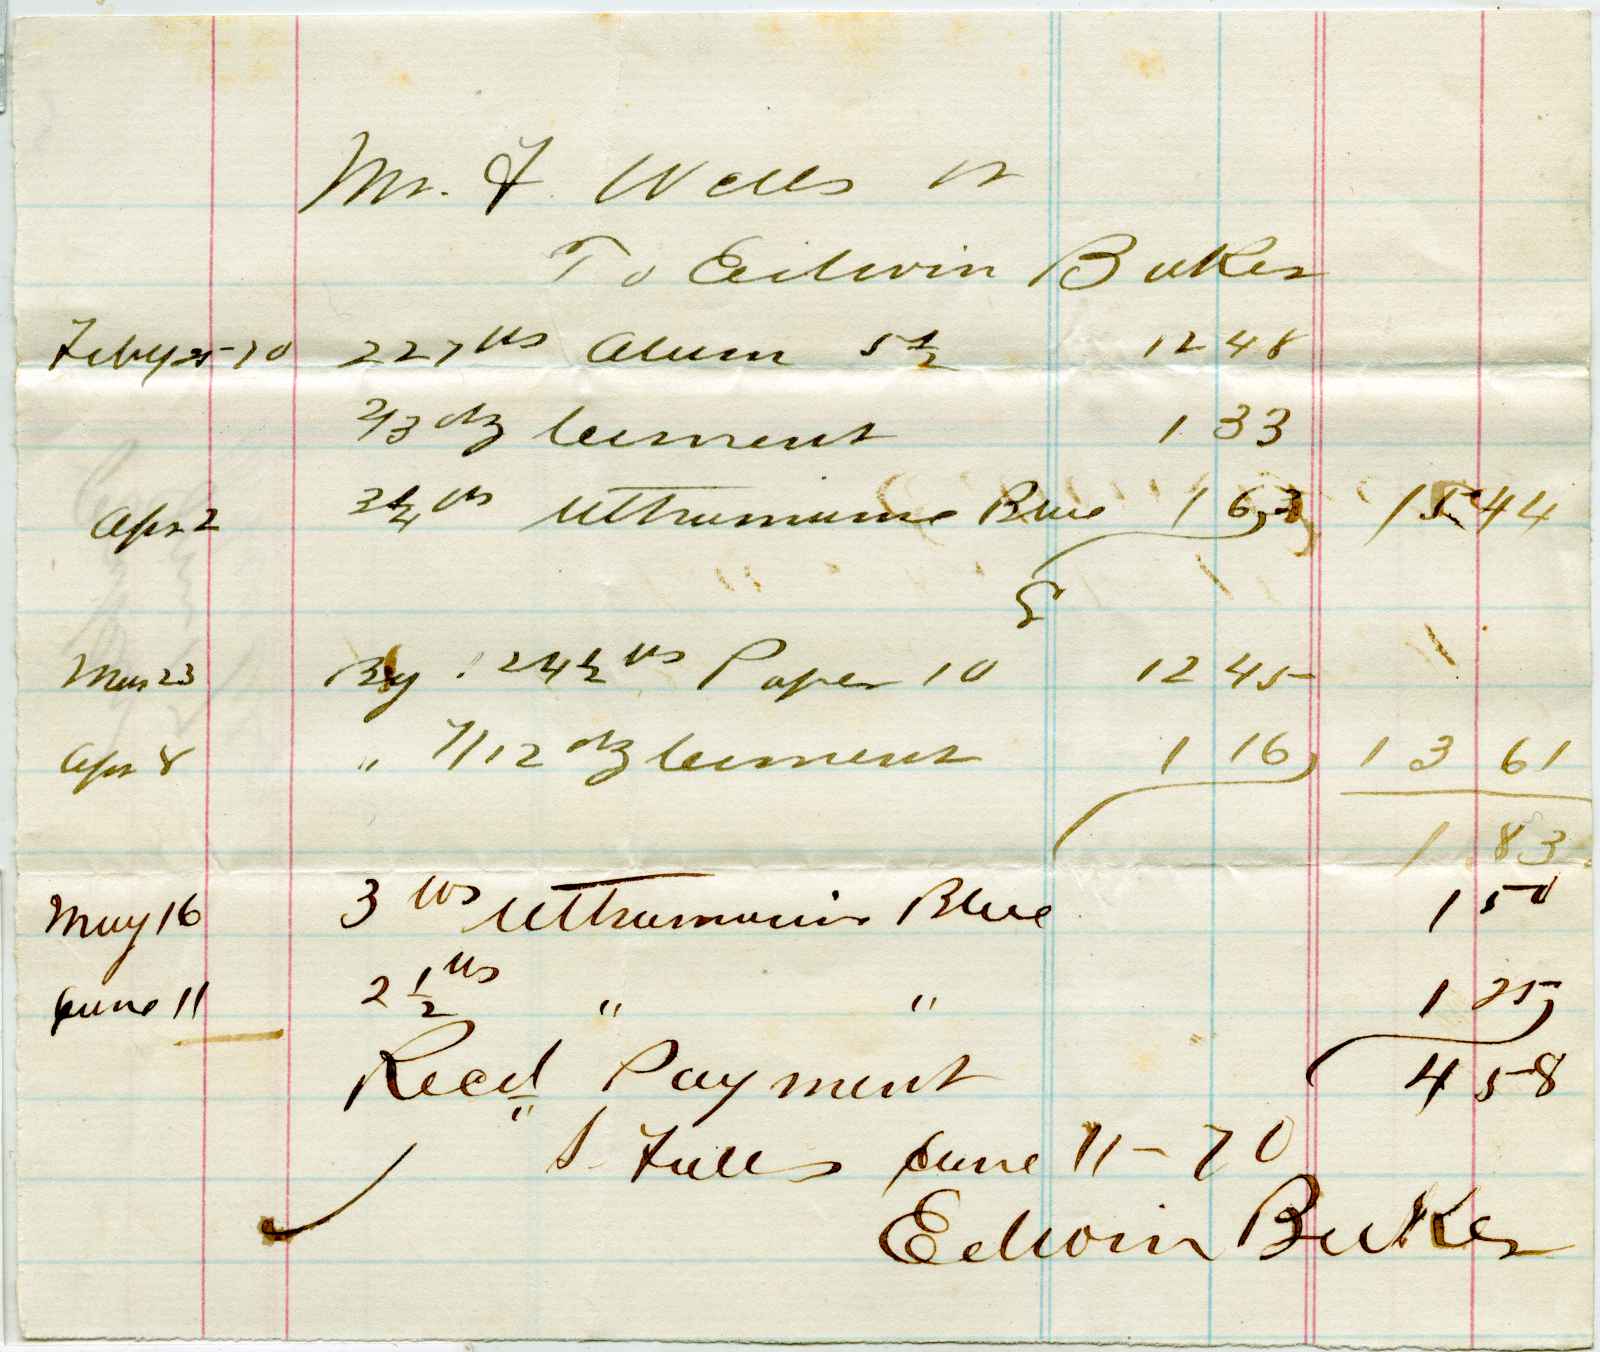 Mr. F. Wells Dr
To Edwin Buker
Feby 25-70 227 lbs Alum 5 1/2 12 48
2/3 dz Cement 1 33
Apr 2 3 1/4 lbs Ultramarine Blue 1 63 15 44
Cr
Mar 23 By 124 1/2 lbs Paper 10 12 45
Apr 8 " 7/12 dz Cement 1 16 13 61
1 83
May 16 3 lbs Ultramarine Blue 1 50
June 11 2 1/2 lbs " " 1 25
Recd Payment 4 58
S. Falls June 11-70
Edwin Buker